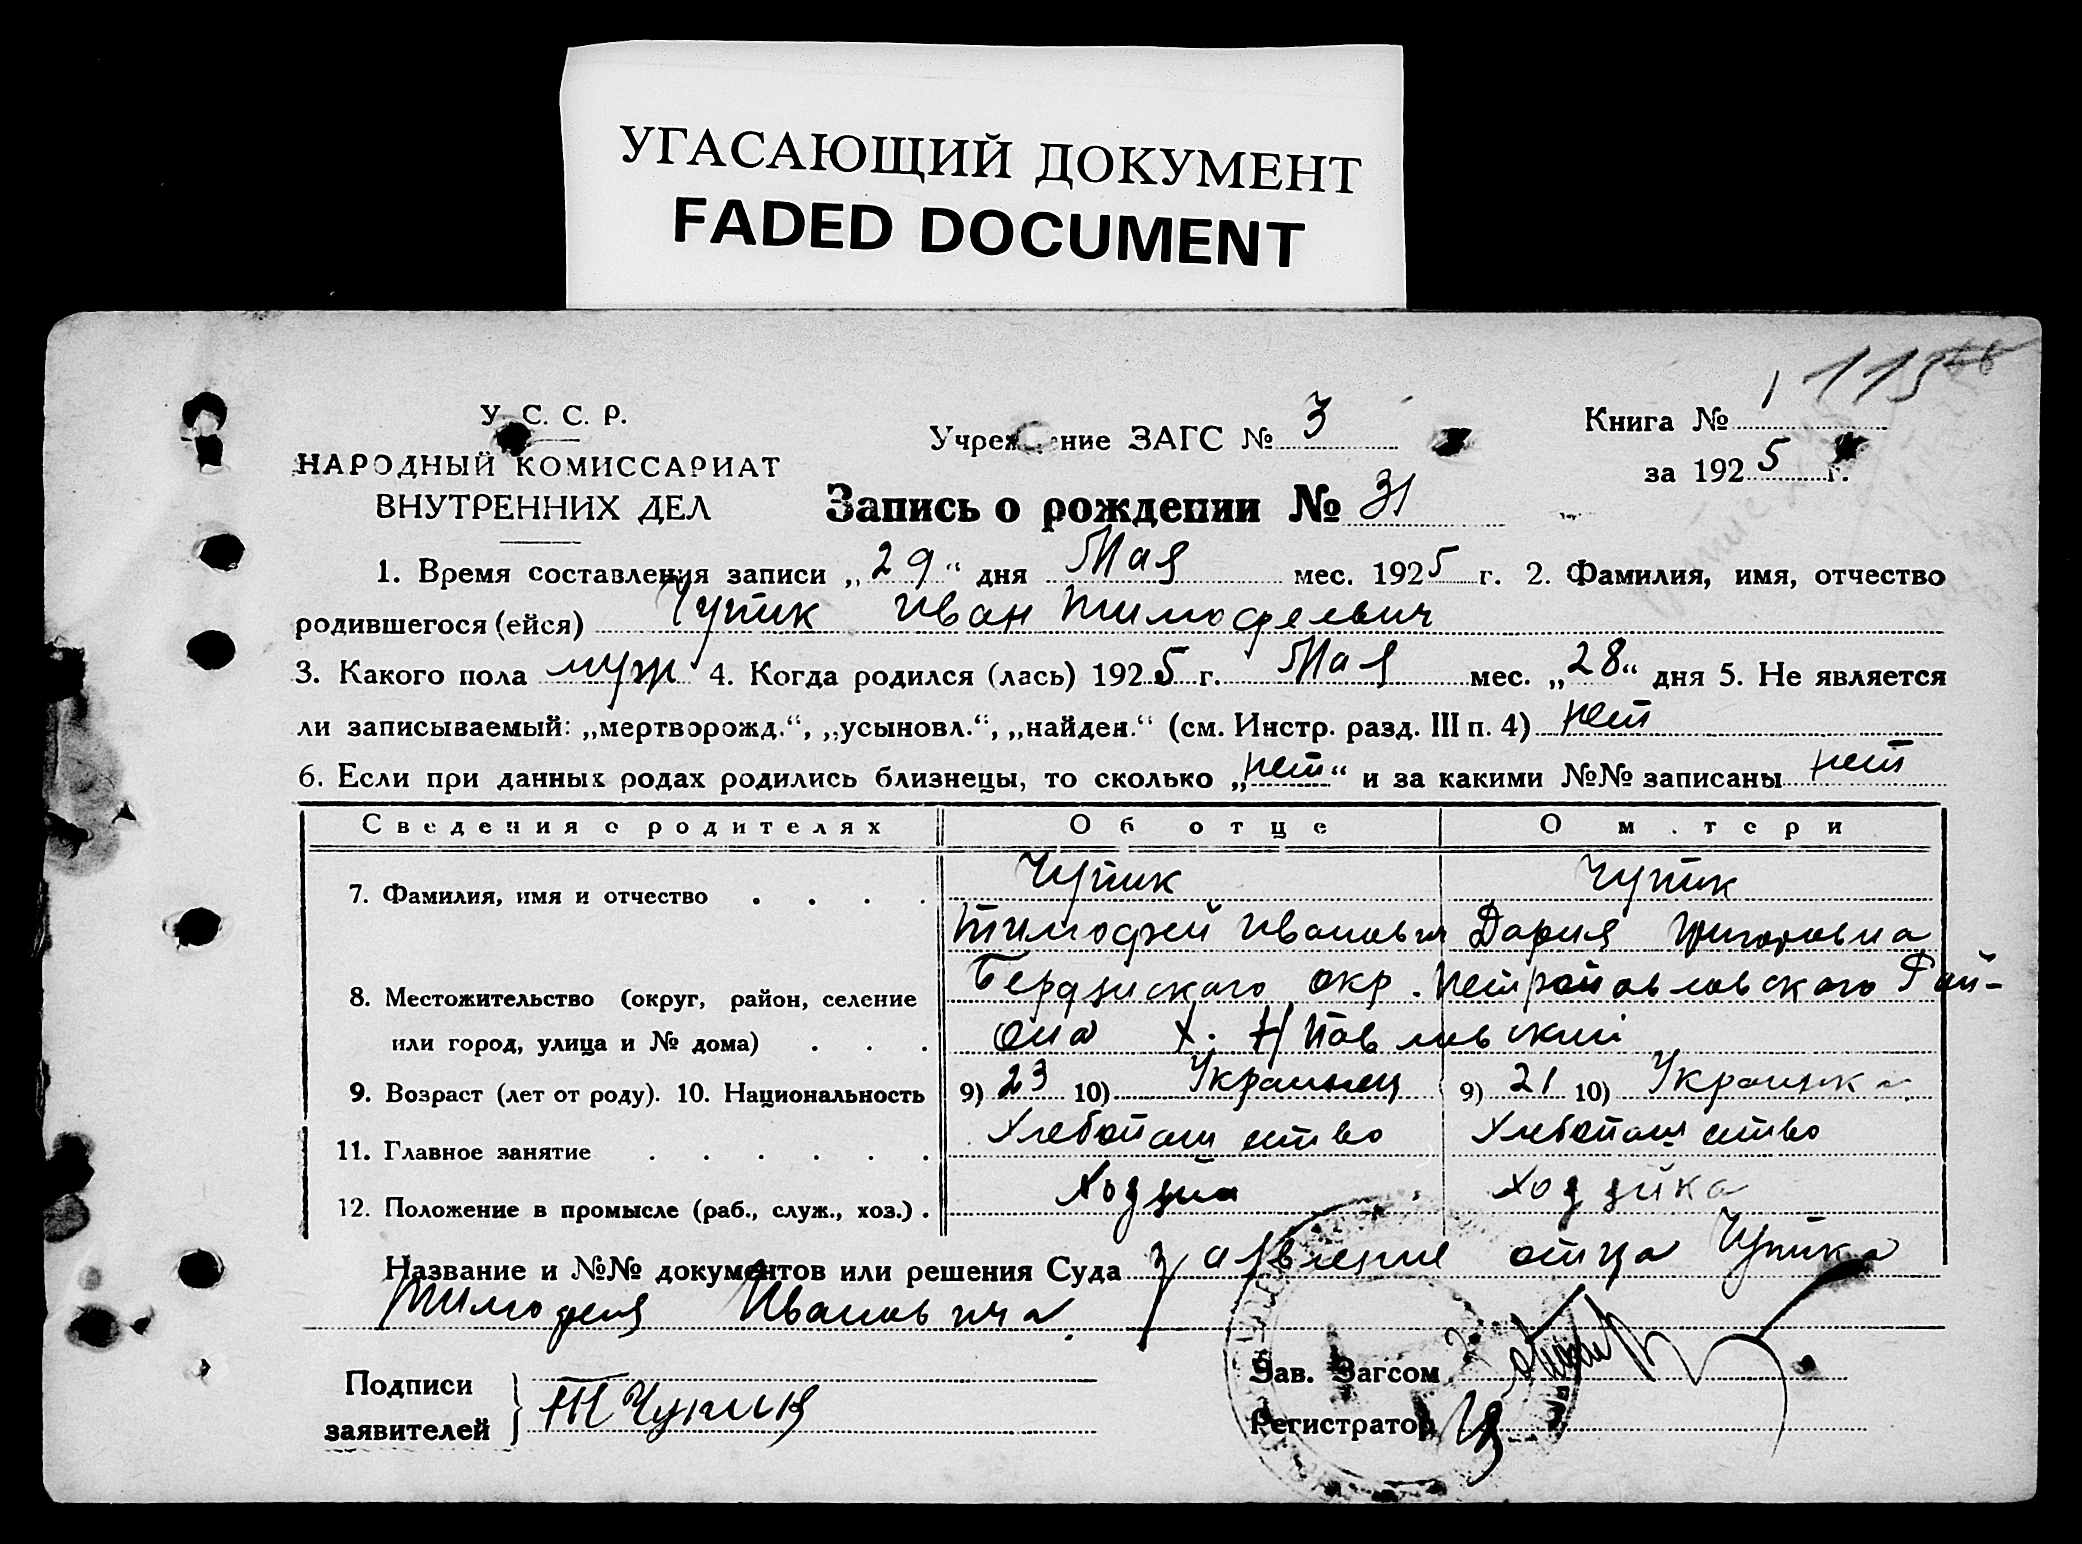 УГАСАЮЩИЙ ДОКУМЕНТ
FADED DOCUMENT
У. С. С. Р.
НАРОДНЫЙ КОМИССАРИАТ
ВНУТРЕННИХ ДЕЛ
Учреждение ЗАГС № 3
Книга № 1
за 1925 г.
Запись о рождении № 31
1. Время составления записи „29“ дня Мая мес. 1925 г. 2. Фамилия, имя, отчество
родившегося (ейся) Чупик Иван Тимофеевич
3. Какого пола муж 4. Когда родился (лась) 1925 г. Мая мес. „28“ дня 5. Не является
ли записываемый: „мертворожд.“, „усыновл.“, „найден.“ (см. Инстр. разд. III п. 4) нет
6. Если при данных родах родились близнецы, то сколько „нет“ и за какими №№ записаны нет
Сведения о родителях Об отце О м.тери
7. Фамилия, имя и отчество Чупик Чупик
Тимофей Иванович Дария Григоровна
8. Местожительство (округ, район, селение Бердянского окр. Петропавловского Рай-
или город, улица и № дома) она Х. Н Павловский
9. Возраст (лет от роду). 10. Национальность 9) 23 10) Украинец 9) 21 10) Украинка
11. Главное занятие Хлебопашество Хлебопашество
12. Положение в промысле (раб., служ., хоз.) Хозяин Хозяйка
Название и №№ документов или решения Суда Заявление отца Чупика
Тимофея Ивановича.
Подписи
заявителей
Т Чупик
Зав. Загсом
Регистратор